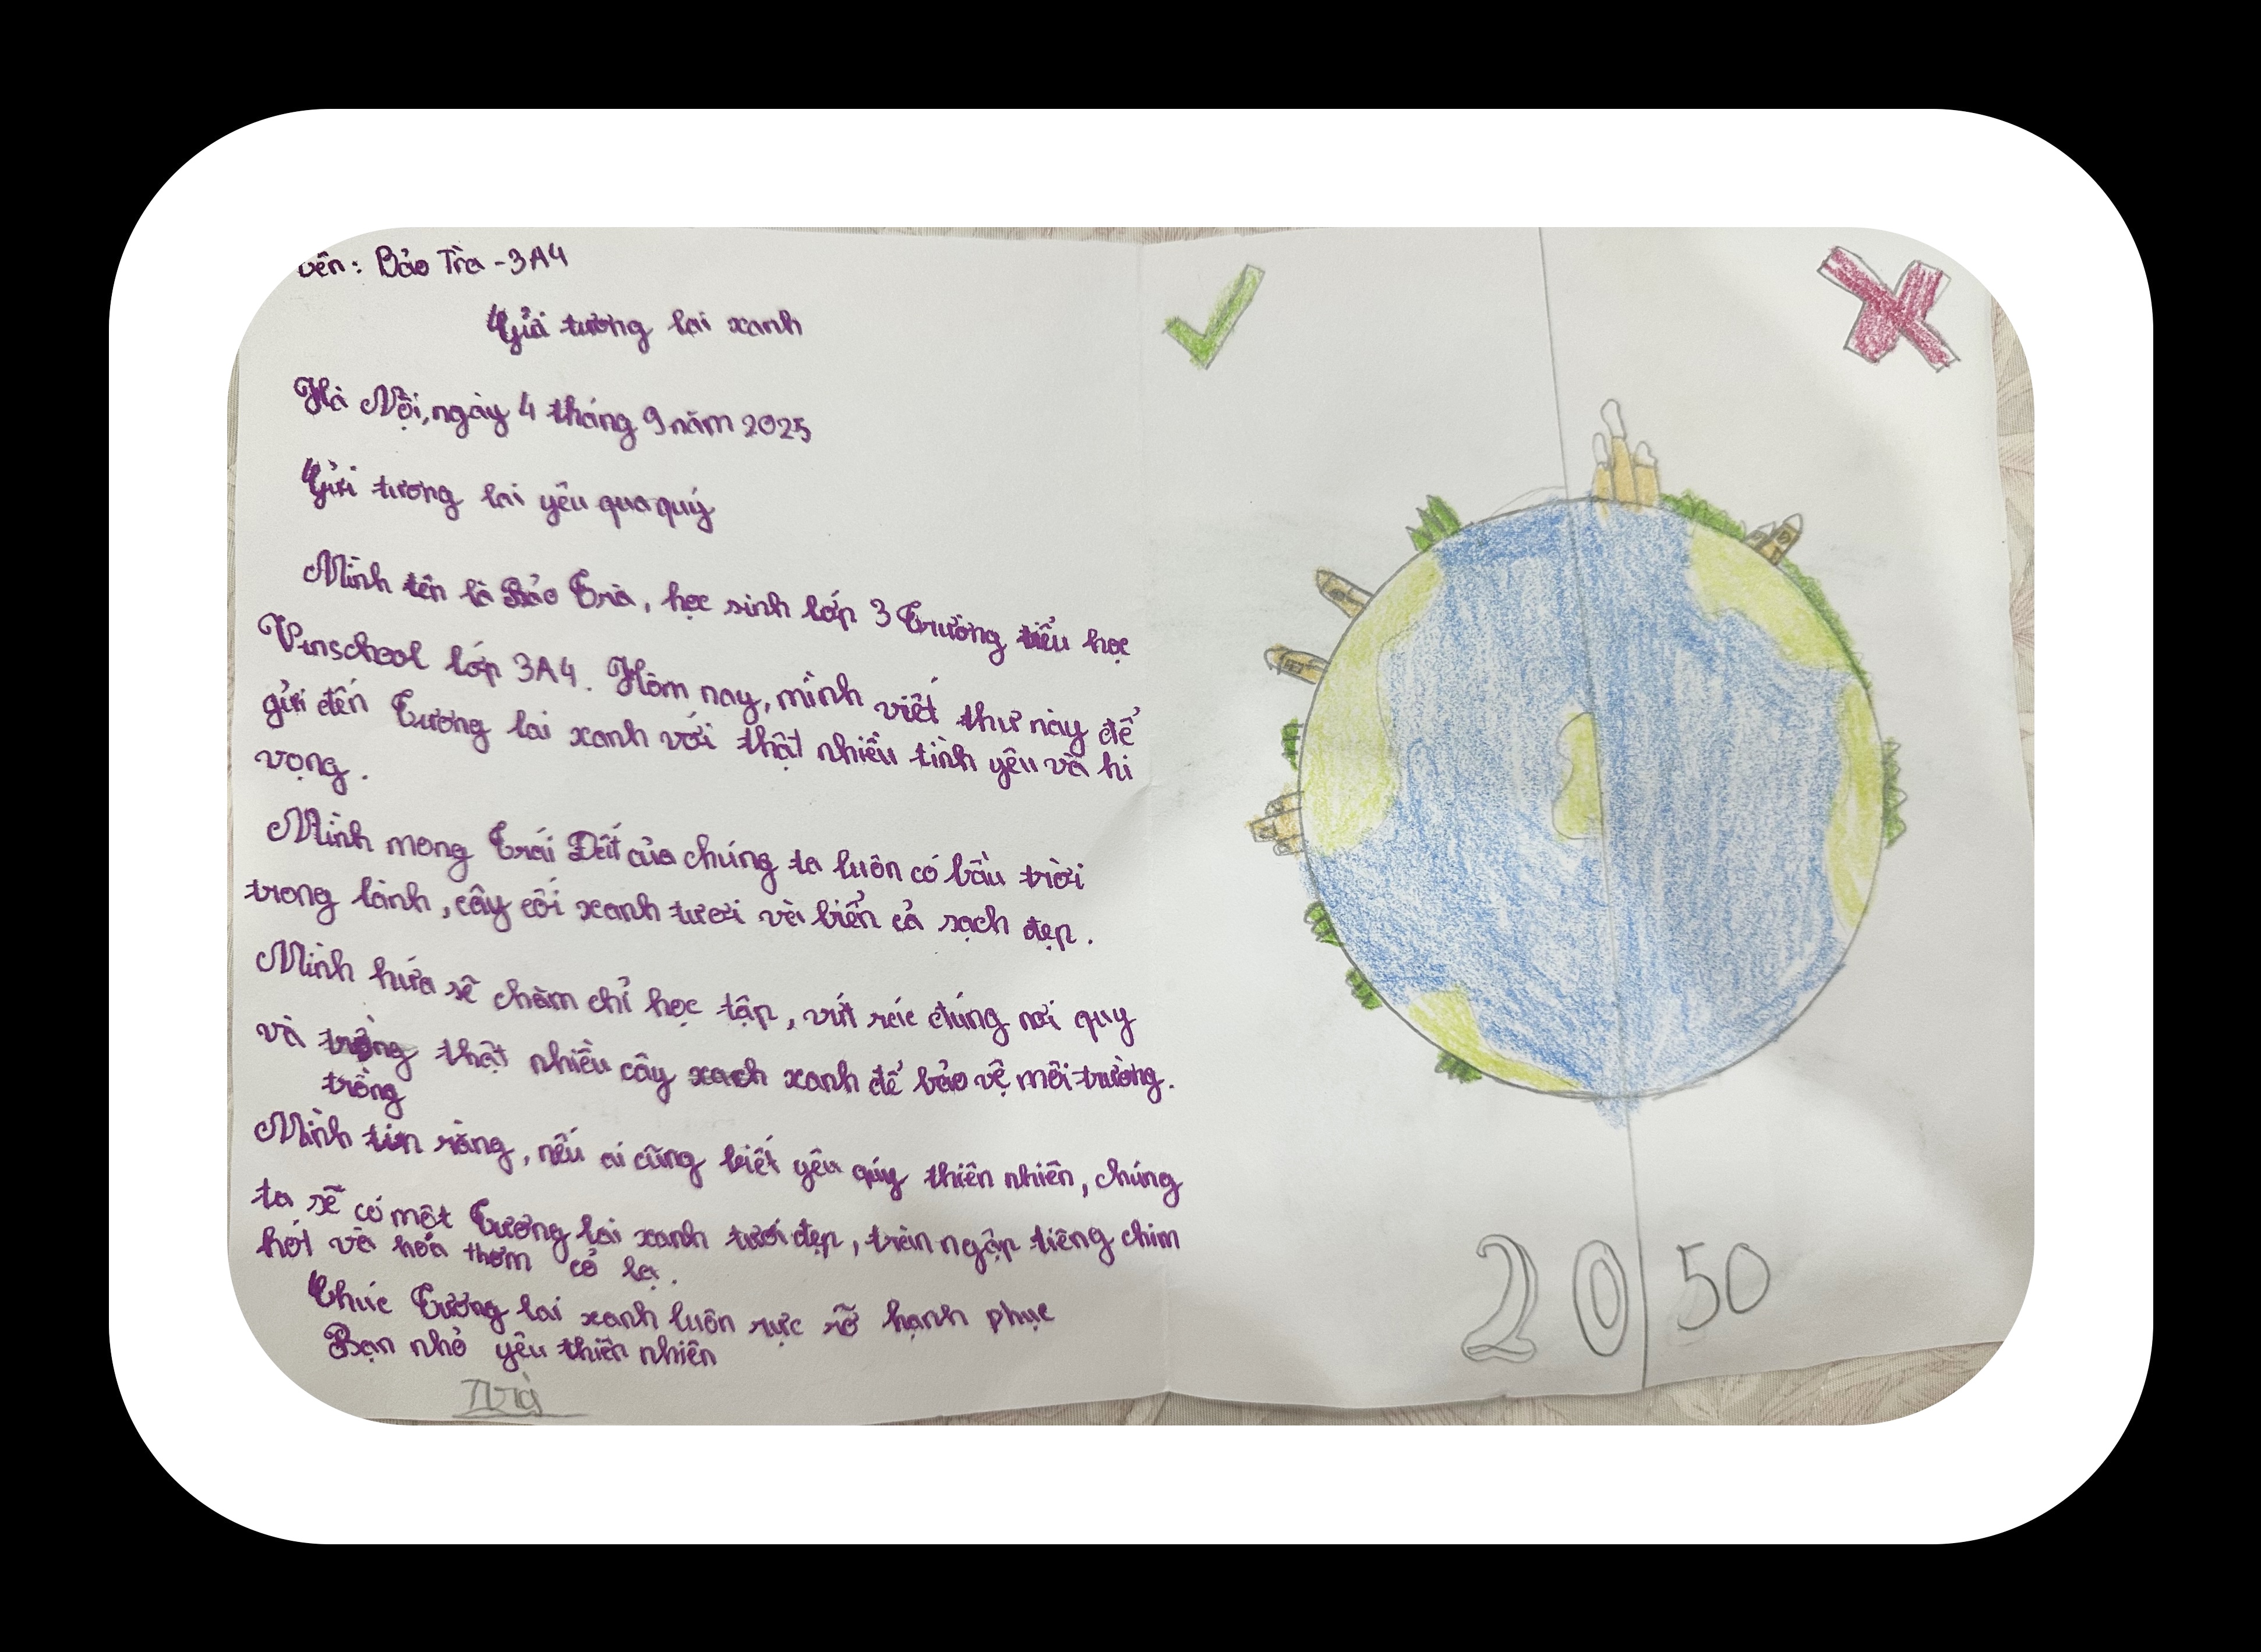 tên: Bảo Trà - 3A4
Gửi tương lai xanh
Hà Nội, ngày 4 tháng 9 năm 2025
Gửi tương lai yêu qua quý
Mình tên là Bảo Trà, học sinh lớp 3 Trường tiểu học
Vinschool lớp 3A4. Hôm nay, mình viết thư này để
gửi đến Tương lai xanh với thật nhiều tình yêu và hi
vọng.
Mình mong Trái Đất của chúng ta luôn có bầu trời
trong lành, cây cối xanh tươi và biển cả sạch đẹp.
Mình hứa sẽ chăm chỉ học tập, vứt rác đúng nơi quy
và thật nhiều cây xach xanh để bảo vệ môi trường.
trồng
Mình tin rằng, nếu ai cũng biết yêu quý thiên nhiên, chúng
ta sẽ có một Tương lai xanh tươi đẹp, tràn ngập tiếng chim
hót và hoa thơm cỏ lạ.
Chúc Tương lai xanh luôn rực rỡ hạnh phục
Bạn nhỏ yêu thiên nhiên
Trà
2050